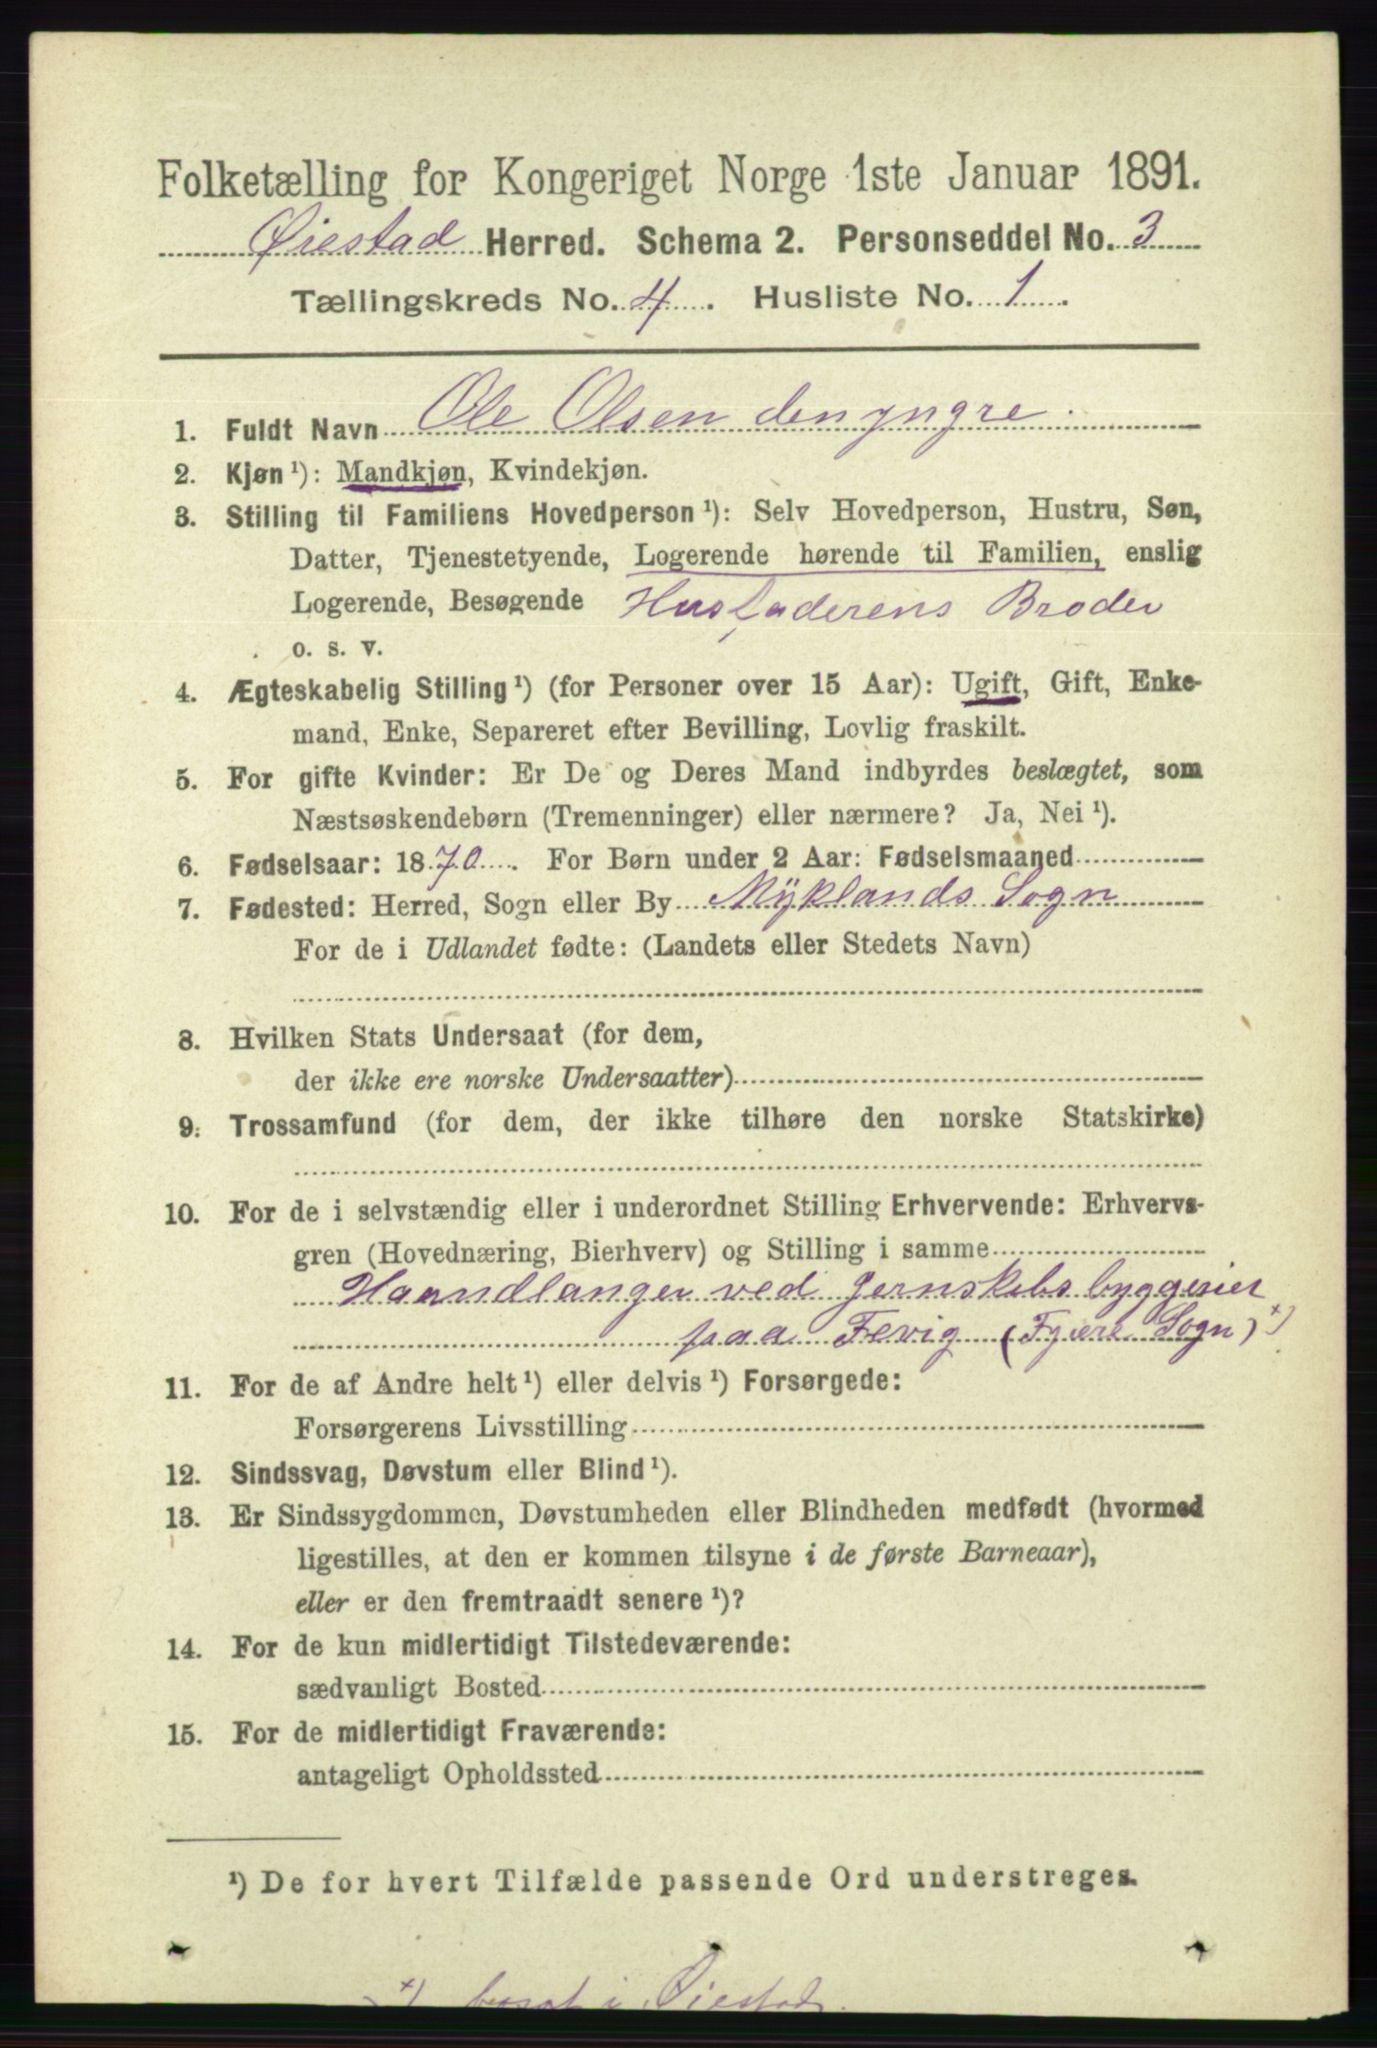 Folketælling for Kongeriget Norge 1ste Januar 1891.
Øiestad Herred. Schema 2. Personseddel No. 3
Tællingskreds No. 4. Husliste No. 1.
1. Fuldt Navn Ole Olsen den yngre.
2. Kjøn ¹): Mandkjøn, Kvindekjøn.
3. Stilling til Familiens Hovedperson ¹): Selv Hovedperson, Hustru, Søn,
Datter, Tjenestetyende, Logerende hørende til Familien, enslig
Logerende, Besøgende Husfaderens Broder
o. s. v.
4. Ægteskabelig Stilling ¹) (for Personer over 15 Aar): Ugift, Gift, Enke-
mand, Enke, Separeret efter Bevilling, Lovlig fraskilt.
5. For gifte Kvinder: Er De og Deres Mand indbyrdes beslægtet, som
Næstsøskendebørn (Tremenninger) eller nærmere? Ja, Nei ¹).
6. Fødselsaar: 1870. For Børn under 2 Aar: Fødselsmaaned
7. Fødested: Herred, Sogn eller By Mÿklands Sogn
For de i Udlandet fødte: (Landets eller Stedets Navn)
8. Hvilken Stats Undersaat (for dem,
der ikke ere norske Undersaatter)
9. Trossamfund (for dem, der ikke tilhøre den norske Statskirke)
10. For de i selvstændig eller i underordnet Stilling Erhvervende: Erhvervs-
gren (Hovednæring, Bierhverv) og Stilling i samme
Haandlanger ved Jernskibsbyggerier
paa Fevig (Fjære Sogn) ˣ)
11. For de af Andre helt ¹) eller delvis ¹) Forsørgede:
Forsørgerens Livsstilling
12. Sindssvag, Døvstum eller Blind ¹).
13. Er Sindssygdommen, Døvstumheden eller Blindheden medfødt (hvormed
ligestilles, at den er kommen tilsyne i de første Barneaar),
eller er den fremtraadt senere ¹)?
14. For de kun midlertidigt Tilstedeværende:
sædvanligt Bosted
15. For de midlertidigt Fraværende:
antageligt Opholdssted
¹) De for hvert Tilfælde passende Ord understreges.
ˣ) bosat i Øiestad.